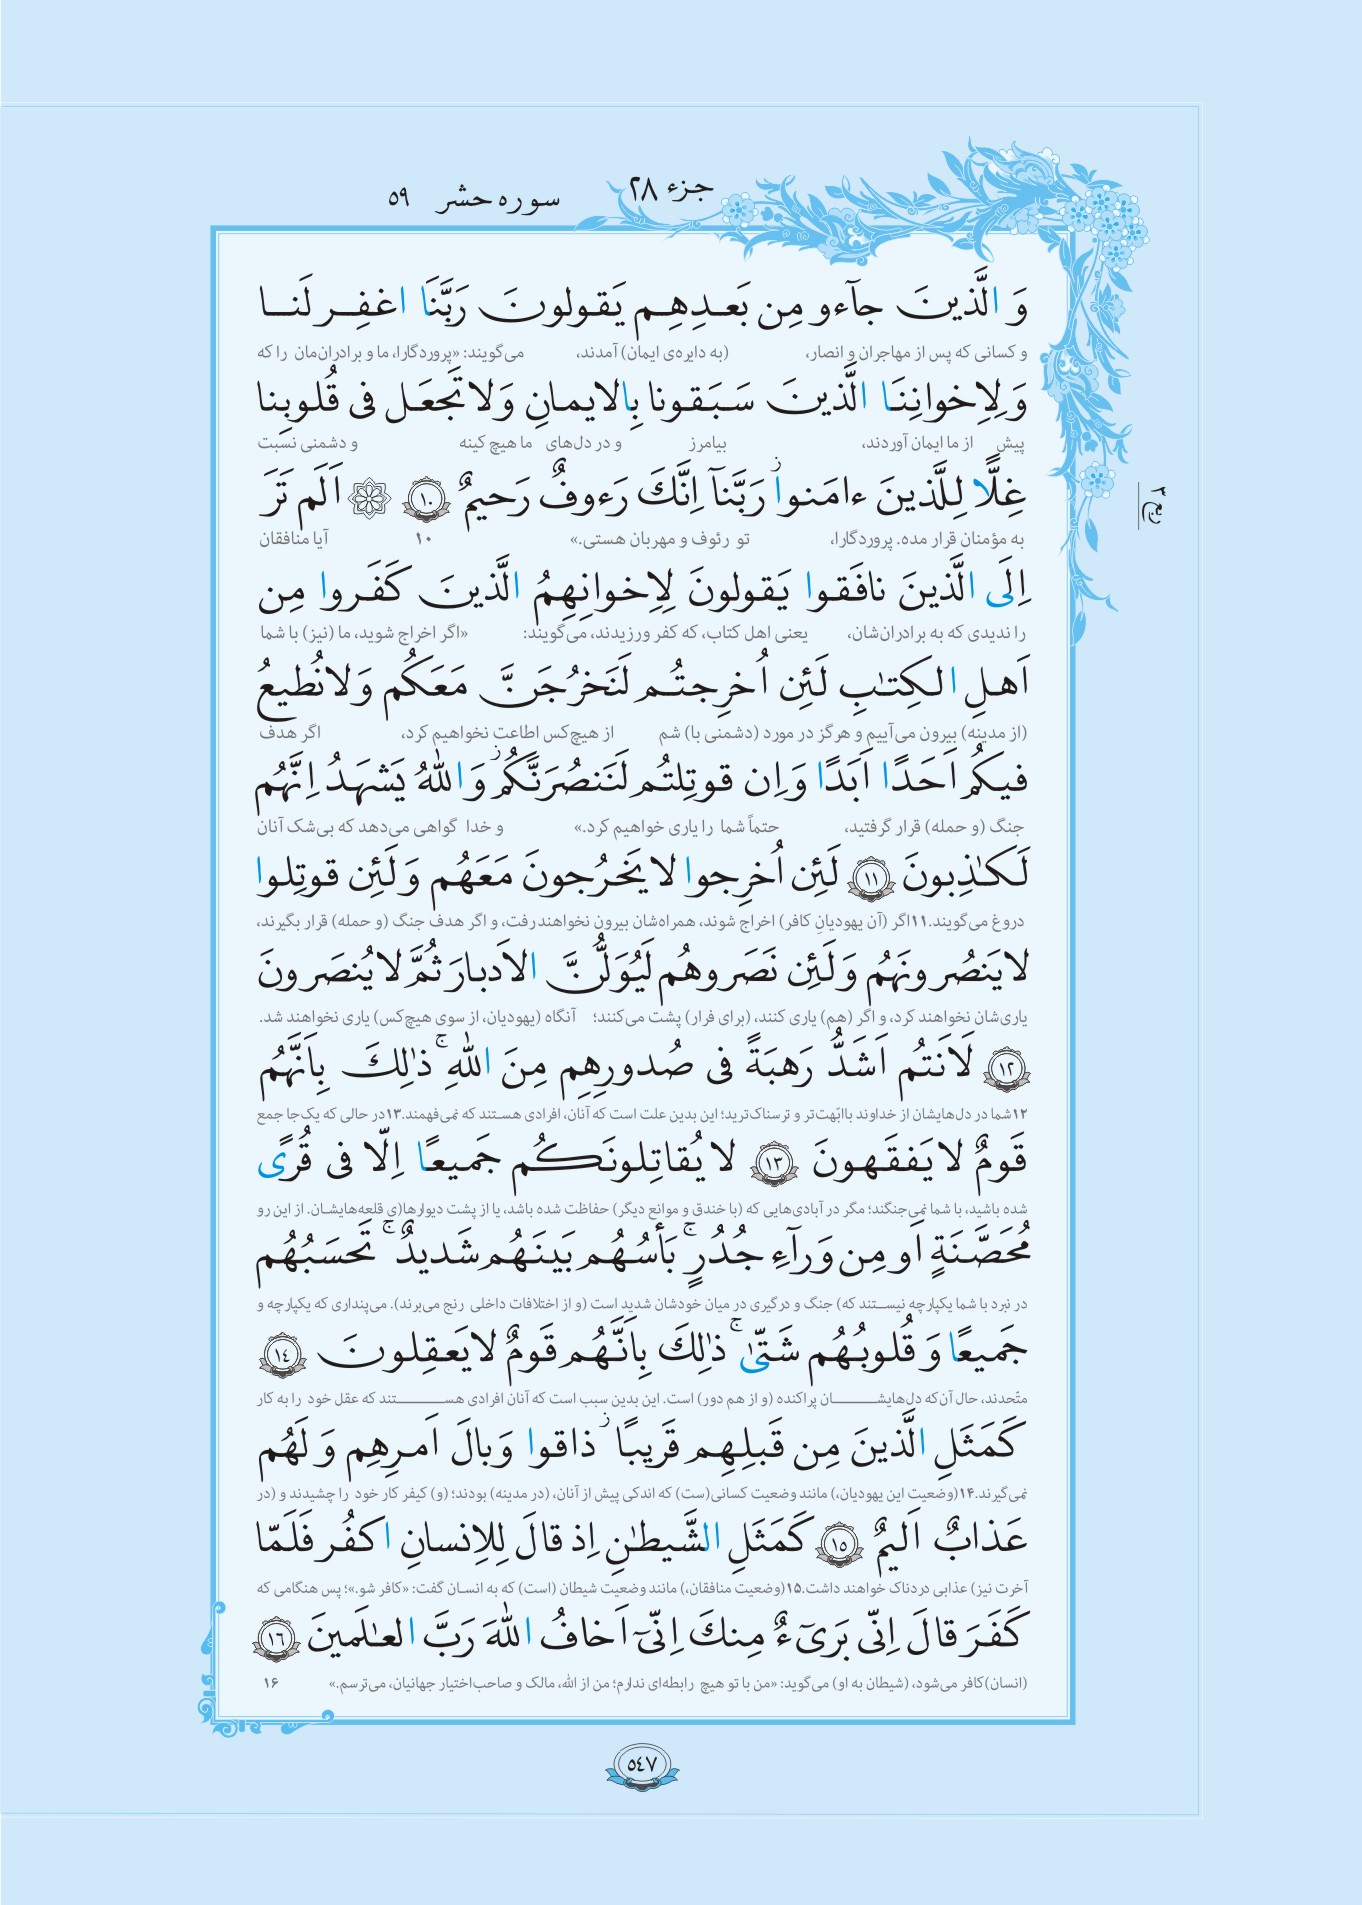 جزء ۲۸
سوره حشر ۵۹
وَ الَّذينَ جآءو مِن بَعدِهِم يَقولونَ رَبَّنَا اغفِر لَنا
و کسانی که پس از مهاجران و انصار، (به دایره‌ی ایمان) آمدند، می‌گویند: «پروردگارا، ما و برادران‌مان را که
وَ لِاِخوانِنَا الَّذينَ سَبَقونا بِالايمانِ وَ لا تَجعَل فى قُلوبِنا
پیش از ما ایمان آوردند، بیامرز و در دل‌های ما هیچ کینه و دشمنی نسبت
غِلًّا لِلَّذينَ ءامَنوا ز رَبَّنآ اِنَّكَ رَءوفٌ رَحيمٌ ١٠ ۞ اَلَم تَرَ
به مؤمنان قرار مده. پروردگارا، تو رئوف و مهربان هستی.» ۱۰ آیا منافقان
ربع ۳
اِلَى الَّذينَ نافَقوا يَقولونَ لِاِخوانِهِمُ الَّذينَ كَفَروا مِن
را ندیدی که به برادران‌شان، یعنی اهل کتاب، که کفر ورزیدند، می‌گویند: «اگر اخراج شوید، ما (نیز) با شما
اَهلِ الكِتٰبِ لَئِن اُخرِجتُم لَنَخرُجَنَّ مَعَكُم وَ لا نُطيعُ
(از مدینه) بیرون می‌آییم و هرگز در مورد (دشمنی با) شم از هیچ‌کس اطاعت نخواهیم کرد، اگر هدف
فيكُم اَحَدًا اَبَدًا وَ اِن قوتِلتُم لَنَنصُرَنَّكُم ز وَ اللّٰهُ يَشهَدُ اِنَّهُم
جنگ (و حمله) قرار گرفتید، حتماً شما را یاری خواهیم کرد.» و خدا گواهی می‌دهد که بی‌شک آنان
لَكٰذِبونَ ١١ لَئِن اُخرِجوا لا يَخرُجونَ مَعَهُم وَ لَئِن قوتِلوا
دروغ می‌گویند.۱۱اگر (آن یهودیانِ کافر) اخراج شوند، همراه‌شان بیرون نخواهند رفت، و اگر هدف جنگ (و حمله) قرار بگیرند،
لا يَنصُرونَهُم وَ لَئِن نَصَروهُم لَيُوَلُّنَّ الاَدبارَ ثُمَّ لا يُنصَرونَ
یاری‌شان نخواهند کرد، و اگر (هم) یاری کنند، (برای فرار) پشت می‌کنند؛ آنگاه (یهودیان، از سوی هیچ‌کس) یاری نخواهند شد.
١٢ لَاَنتُم اَشَدُّ رَهبَةً فى صُدورِهِم مِنَ اللّٰهِ ۚ ذٰلِكَ بِاَنَّهُم
۱۲شما در دل‌هایشان از خداوند باابّهت‌تر و ترسناک‌ترید؛ این بدین علت است که آنان، افرادی هستند که نمی‌فهمند.۱۳در حالی که یک‌جا جمع
قَومٌ لا يَفقَهونَ ١٣ لا يُقاتِلونَكُم جَميعًا اِلّا فى قُرًى
شده باشید، با شما نمی‌جنگند؛ مگر در آبادی‌هایی که (با خندق و موانع دیگر) حفاظت شده باشد، یا از پشت دیوارها(ی قلعه‌هایشان. از این رو
مُحَصَّنَةٍ اَو مِن وَرآءِ جُدُرٍ ۚ بَأسُهُم بَينَهُم شَديدٌ ۚ تَحسَبُهُم
در نبرد با شما یکپارچه نیستند که) جنگ و درگیری در میان خودشان شدید است (و از اختلافات داخلی رنج می‌برند). می‌پنداری که یکپارچه و
جَميعًا وَ قُلوبُهُم شَتّىٰ ۚ ذٰلِكَ بِاَنَّهُم قَومٌ لا يَعقِلونَ ١٤
متّحدند، حال آن‌که دل‌هایشان پراکنده (و از هم دور) است. این بدین سبب است که آنان افرادی هستند که عقل خود را به کار
كَمَثَلِ الَّذينَ مِن قَبلِهِم قَريبًا ز ذاقوا وَبالَ اَمرِهِم وَ لَهُم
نمی‌گیرند.۱۴(وضعیت این یهودیان،) مانند وضعیت کسانی(ست) که اندکی پیش از آنان، (در مدینه) بودند؛ (و) کیفر کار خود را چشیدند و (در
عَذابٌ اَليمٌ ١٥ كَمَثَلِ الشَّيطٰنِ اِذ قالَ لِلاِنسانِ اكفُر فَلَمّا
آخرت نیز) عذابی دردناک خواهند داشت.۱۵(وضعیت منافقان،) مانند وضعیت شیطان (است) که به انسان گفت: «کافر شو.»؛ پس هنگامی که
كَفَرَ قالَ اِنّى بَرىٓءٌ مِنكَ اِنّىٓ اَخافُ اللّٰهَ رَبَّ العٰلَمينَ ١٦
(انسان)کافر می‌شود، (شیطان به او) می‌گوید: «من با تو هیچ رابطه‌ای ندارم؛ من از الله، مالک و صاحب‌اختیار جهانیان، می‌ترسم.» ۱۶
٥٤٧